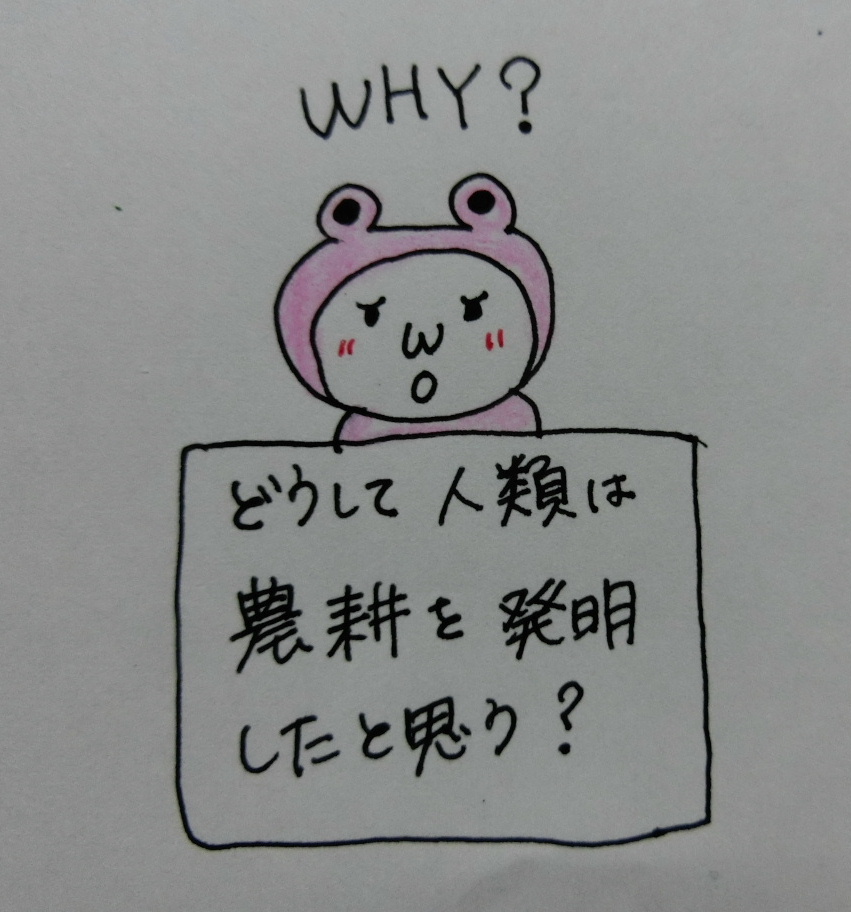 WHY?
どうして人類は
農耕を発明
したと思う?